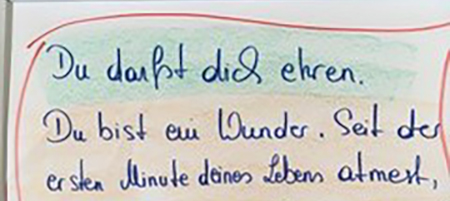 Du darfst dich ehren.
Du bist ein Wunder. Seit der
ersten Minute deines Lebens atmest,